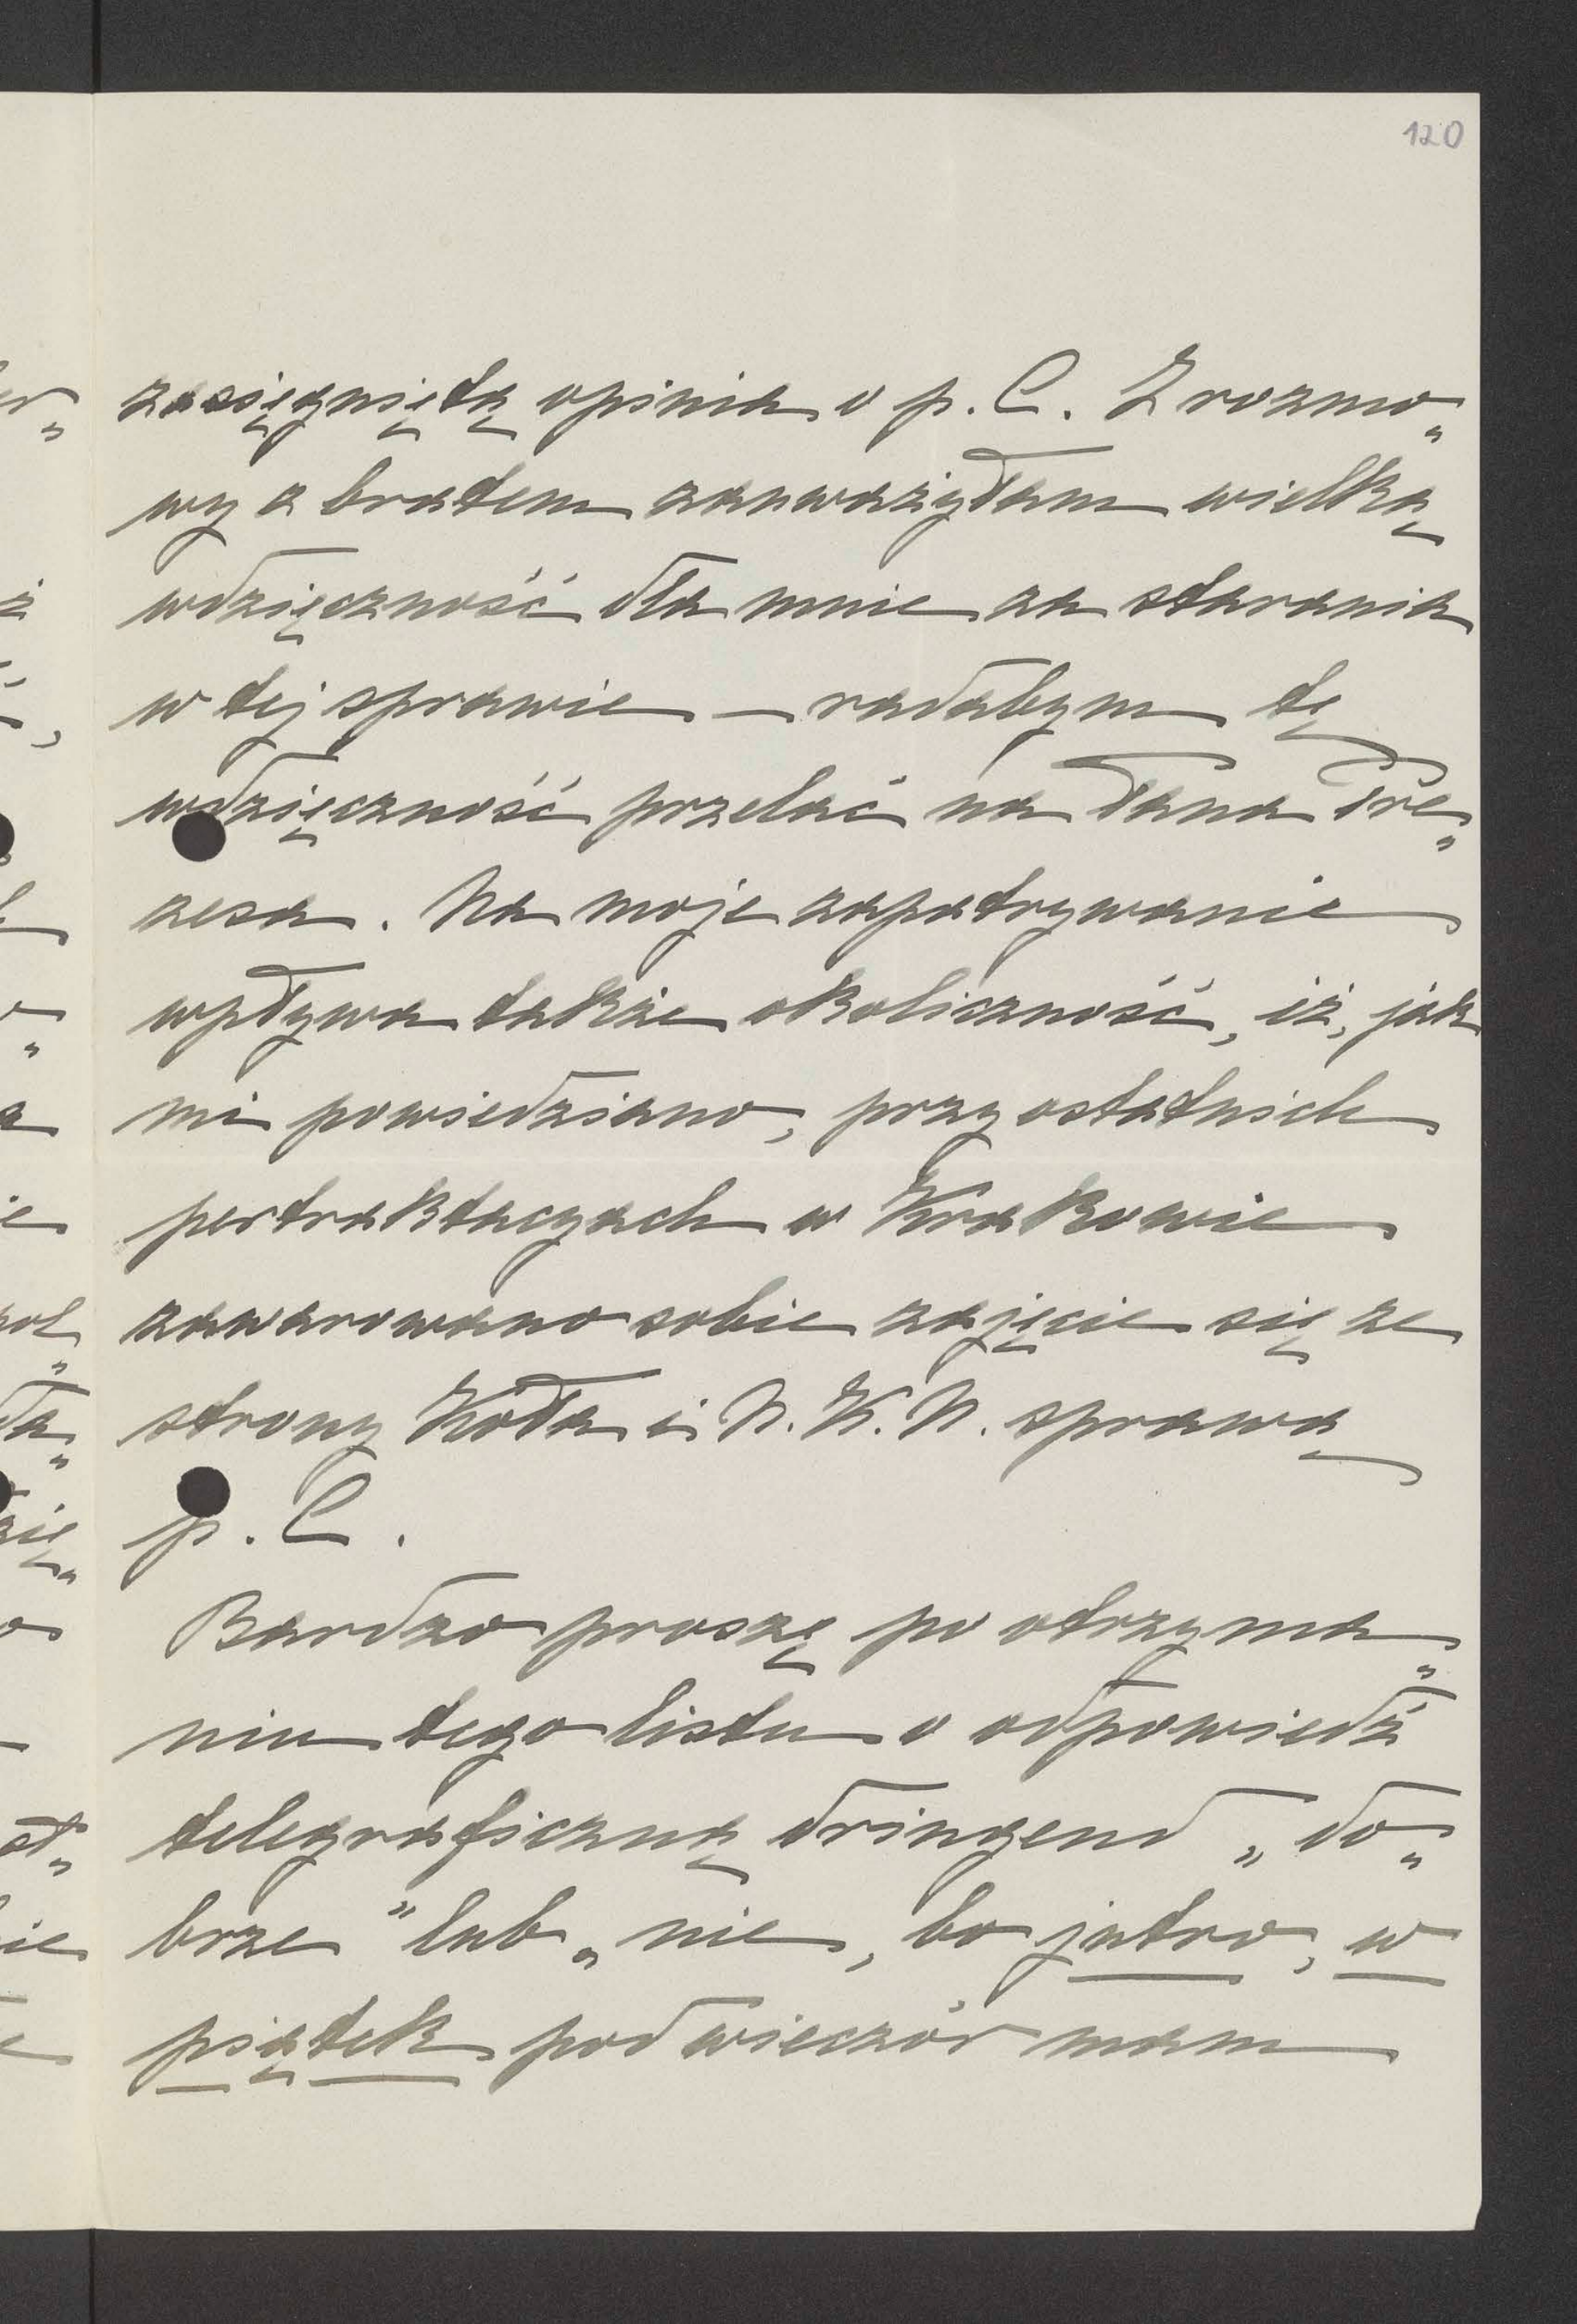 120
zasięgniętą opinia o p. C. Z rozmo„
wy z bratem zauważyłam wielką
wdzięczność dla mnie za starania
w tej sprawie — radabym tę
wdzięczność przelać na Pana Pre„
zesa. Na moje zapatrywanie
wpływa także okoliczność, iż, jak
mi powiedziano, przy ostatnich
pertraktacyach w Krakowie
zawarowano sobie zajęcie się ze
strony Koła i N. K. N. sprawą
p. C.
Bardzo proszę po otrzyma„
niu tego listu o odpowiedź
telegraficzną dringend „do„
brze" lub „nie, bo jutro, w
piątek pod wieczór mam